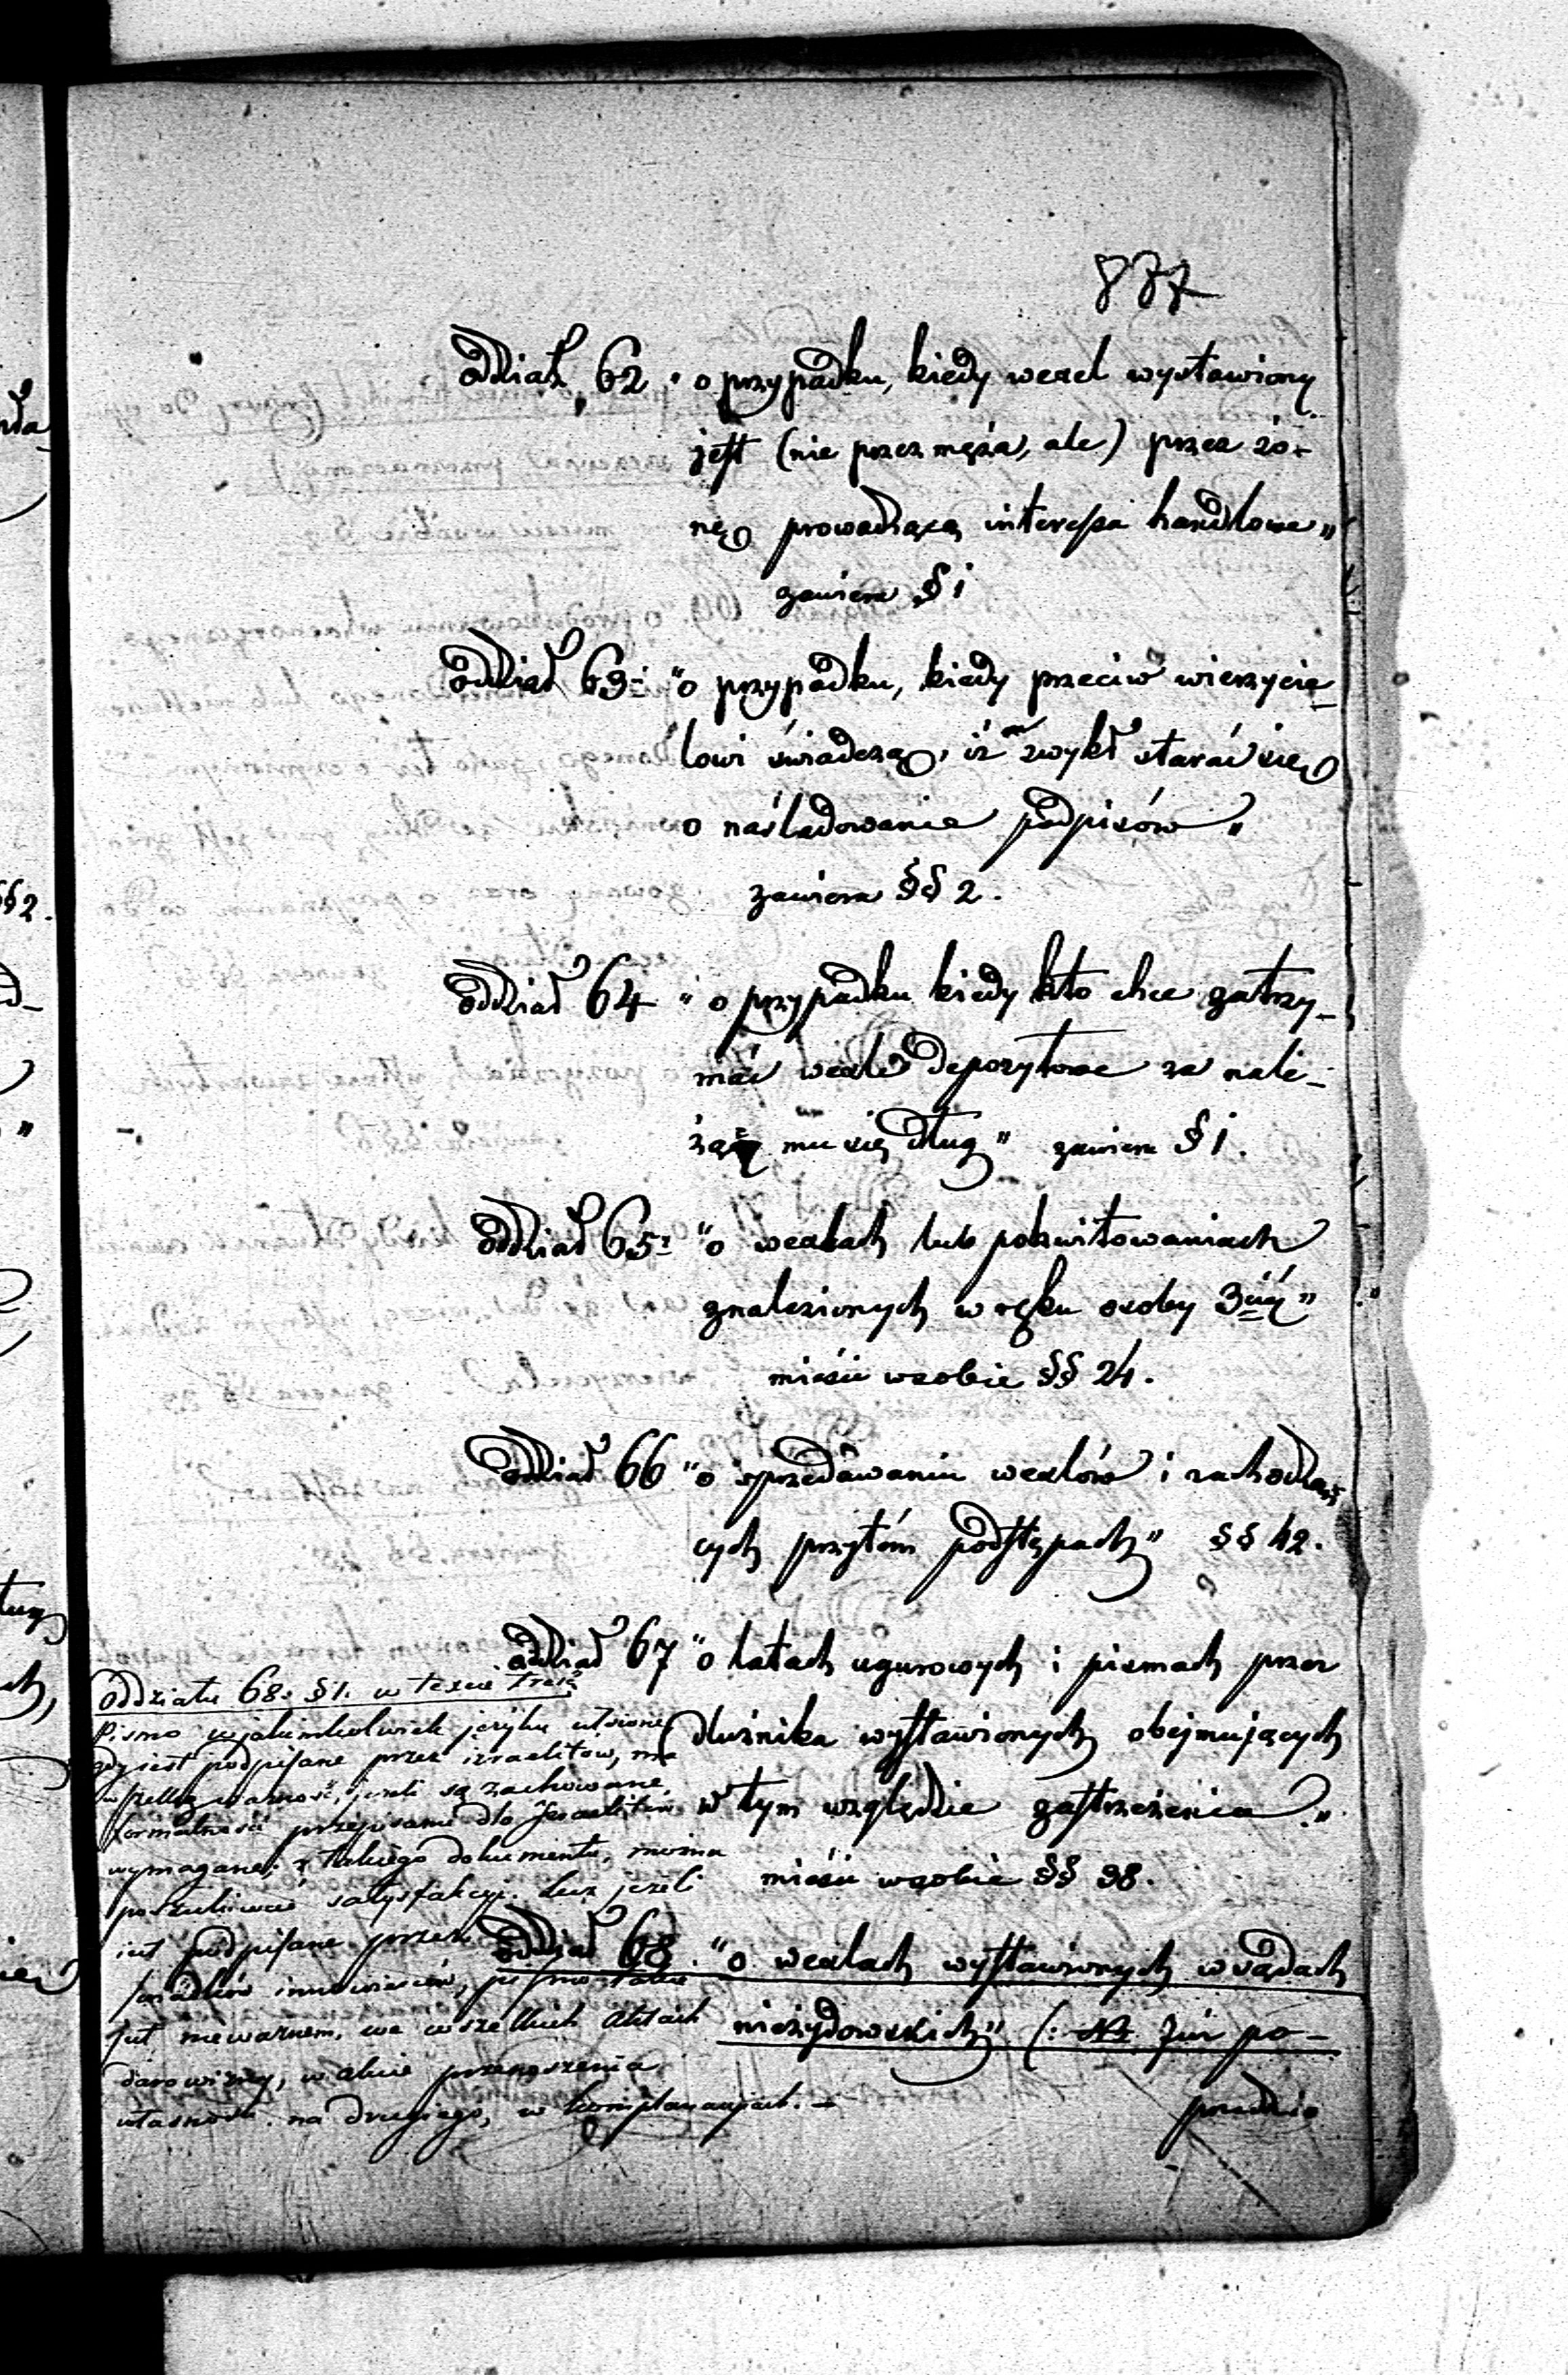 877
oddział 62. o przypadku, kiedy wexel wystawiony
jest (nie przez męża, ale) przez żo-
nę prowadzącą interessa handlowe„
zawiera § 1
oddział 63: "o przypadku, kiedy przeciw wierzycie
lowi świadczą, iż zwykł starać się
o naśladowanie podpisów„
zawiera §§ 2.
oddział 64 "o przypadku kiedy kto chce zatrzy-
mać wexle depozytowe za nale-
mu się dług" zawiera § 1.
oddział 65: "o wexlach lub pokwitowaniach
znalezionych w ręku osoby 3ciéj"
mieści w sobie §§ 24.
oddział 66 "o sprzedawaniu wexlów i zachodzą
cych przytém podstępach" §§ 42.
oddział 67 "o latach ugurowych i pismach przez
dłużnika wystawionych obejmujących
w tym względzie zastrzeżenia„
mieści w sobie §§ 38.
oddział 68. "o wexlach wystawionych w sądach
nieżydowskich" (: Już po-
przednio
oddziału 68. § 1. w texcie treść
Pismo w jakimkolwiek języku
gdy jest podpisane przez izraelitów, ma
wszelką ważność, jeżeli są zachowane
formalności przepisami dla Izraelitów
wymagane; z takiego dokumentu, można
poszukiwać satysfakcyi. Lecz jeżeli
jest podpisane przez
świadków innowierców, pismo takie
jest nieważnem, we wszelkich aktach
darowizny, w akcie przenoszenia
własności na drugiego, w komplanacyach.